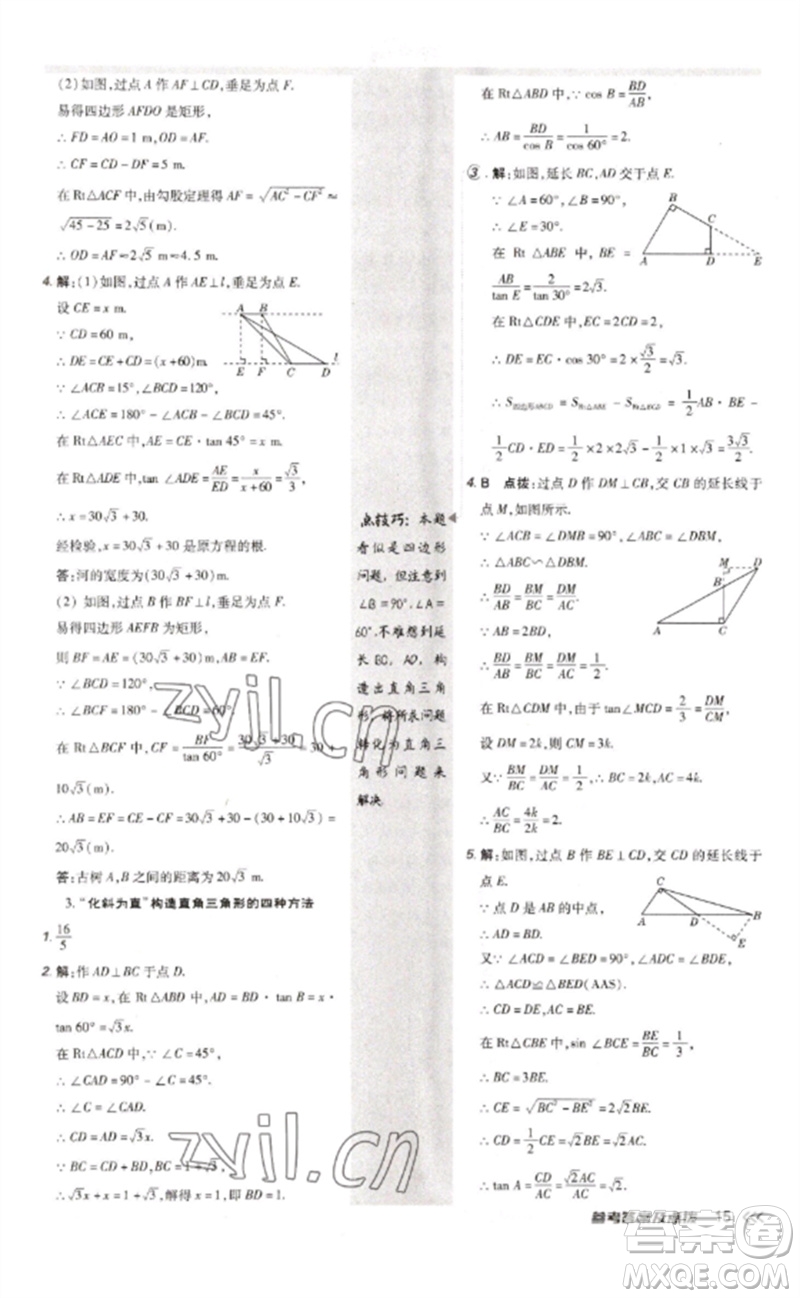 (2)如图,过点 A 作 AF⊥CD,垂足为点 F.
易得四边形 AFDO 是矩形,
∴ FD=AO=1 m,OD=AF.
∴ CF=CD-DF=5 m.
在 Rt△ACF 中,由勾股定理得 AF=√(AC²-CF²)≈
√(45-25)=2√5(m).
∴ OD=AF=2√5 m≈4.5 m.
4. 解:(1)如图,过点 A 作 AE⊥l,垂足为点 E.
设 CE=x m.
∵ CD=60 m,
∴ DE=CE+CD=(x+60)m.
∵ ∠ACB=15°,∠BCD=120°,
∴ ∠ACE=180°-∠ACB-∠BCD=45°.
在 Rt△AEC 中,AE=CE·tan 45°=x m.
在 Rt△ADE 中,tan ∠ADE=AE/ED=x/(x+60)=√3/3,
∴ x=30√3+30.
经检验,x=30√3+30 是原方程的根.
答:河的宽度为(30√3+30)m.
(2) 如图,过点 B 作 BF⊥l,垂足为点 F.
易得四边形 AEFB 为矩形,
则 BF=AE=(30√3+30)m,AB=EF.
∵ ∠BCD=120°,
∴ ∠BCF=180°-∠BCD=60°.
在 Rt△BCF 中,CF=BF/tan 60°=(30√3+30)/√3=30+
10√3(m).
∴ AB=EF=CE-CF=30√3+30-(30+10√3)=
20√3(m).
答:古树 A,B 之间的距离为 20√3 m.
3. "化斜为直"构造直角三角形的四种方法
1. 16/5
2. 解:作 AD⊥BC 于点 D.
设 BD=x,在 Rt△ABD 中,AD=BD·tan B=x·
tan 60°=√3x.
在 Rt△ACD 中,∵ ∠C=45°,
∴ ∠CAD=90°-∠C=45°.
∴ ∠C=∠CAD.
∴ CD=AD=√3x.
∵ BC=CD+BD=1+√3,
∴ √3x+x=1+√3,解得 x=1,即 BD=1.
A B
E F C D l
点技巧:本题
看似是四边形
问题,但注意到
∠B=90°,∠A=
60°,不难想到延
长BC,AD,构
造出直角三角
形,将所求问题
转化为直角三
角形问题来
解决.
在 Rt△ABD 中,∵ cos B=BD/AB,
∴ AB=BD/cos B=1/cos 60°=2.
③. 解:如图,延长 BC,AD 交于点 E.
∵ ∠A=60°,∠B=90°,
∴ ∠E=30°.
在 Rt △ABE 中, BE =
AB/tan E=2/tan 30°=2√3.
在 Rt△CDE 中,EC=2CD=2,
∴ DE=EC·cos 30°=2×√3/2=√3.
∴ S四边形ABCD=SRt△ABE-SRt△ECD=1/2AB·BE-
1/2CD·ED=1/2×2×2√3-1/2×1×√3=3√3/2.
B
C
A D E
4. B 点拨:过点 D 作 DM⊥CB,交 CB 的延长线于
点 M,如图所示.
∵ ∠ACB=∠DMB,∠ABC=∠DBM,
∴ △ABC∽△DBM.
∴ BD/AB=BM/BC=DM/AC.
∵ AB=2BD,
∴ BD/AB=BM/BC=DM/AC=1/2.
在 Rt△CDM 中,由于 tan∠MCD=2/3=DM/CM,
设 DM=2k,则 CM=3k.
又∵ BM/BC=DM/AC=1/2,∴ BC=2k,AC=4k.
∴ AC/BC=4k/2k=2.
M D
B
A C
5. 解:如图,过点 B 作 BE⊥CD,交 CD 的延长线于
点 E.
∵ 点 D 是 AB 的中点,
∴ AD=BD.
又∵ ∠ACD=∠BED=90°,
∠ADC=∠BDE,
∴ △ACD≌△BED(AAS).
∴ CD=DE,AC=BE.
在 Rt△CBE 中,sin ∠BCE=BE/BC=1/3,
∴ BC=3BE.
∴ CE=√(BC²-BE²)=2√2BE.
∴ CD=1/2CE=√2BE=√2AC.
∴ tan A=CD/AC=√2AC/AC=√2.
C
A D B
E
zyjl.cn
zyjl.cn
参考答案及点拨 15
答案圈
MXQE.COM